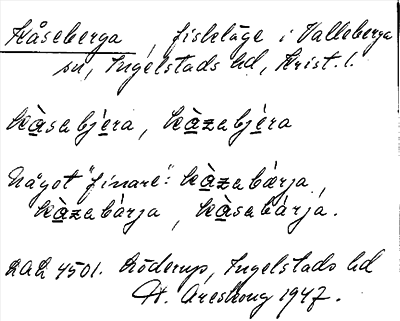 Kåseberga, fiskeläge i Valleberga
sn, Ingelstads hd, Krist. l.
kàsabjéra, kàzabjéra
Något "finare": kàzabærja,
kàzabárja, kàsabárja.
LAL 4501. Löderup, Ingelstads hd
H. Areskoug 1947.